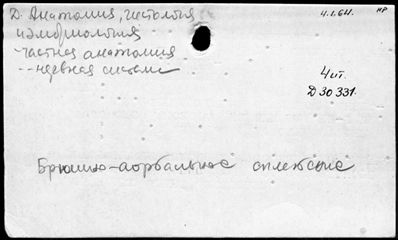 Д. Анатомия, гистология
и эмбриология
- частная анатомия
-- нервная система
4.1.64. НР
4 ит.
Д 30 331.
Брюшно-аорбальное сплетение